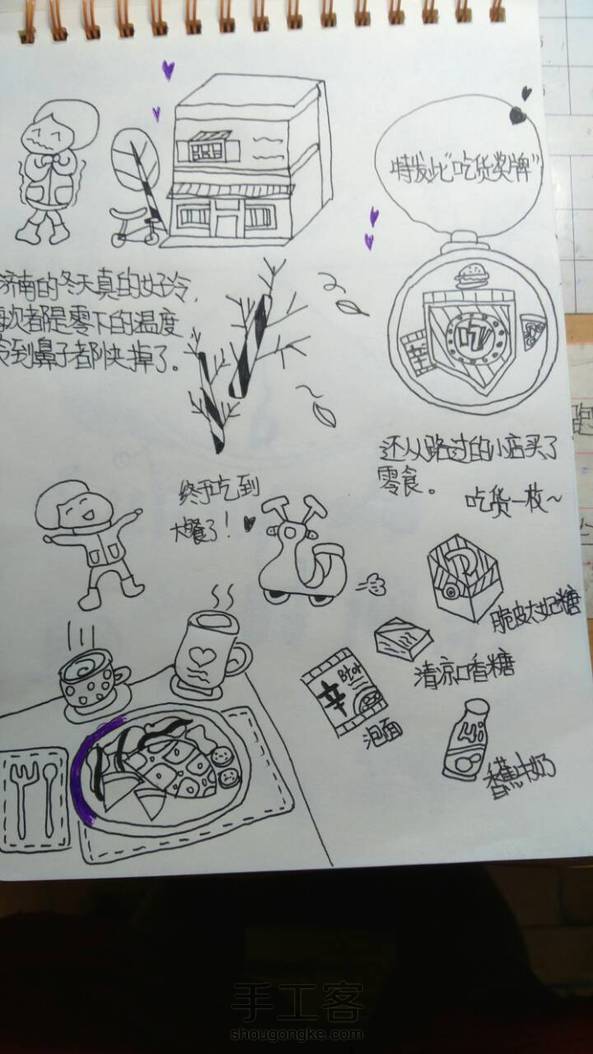 特发此“吃货奖牌”
吃
济南的冬天真的好冷,
每次都是零下的温度
冷到鼻子都快掉了。
还从路过的小店买了
零食。
吃货一枚~
终于吃到
大餐了!
脆皮大妃糖
清凉口香糖
辛
泡面
Hi
香蕉牛奶
手工客
shougongke.com